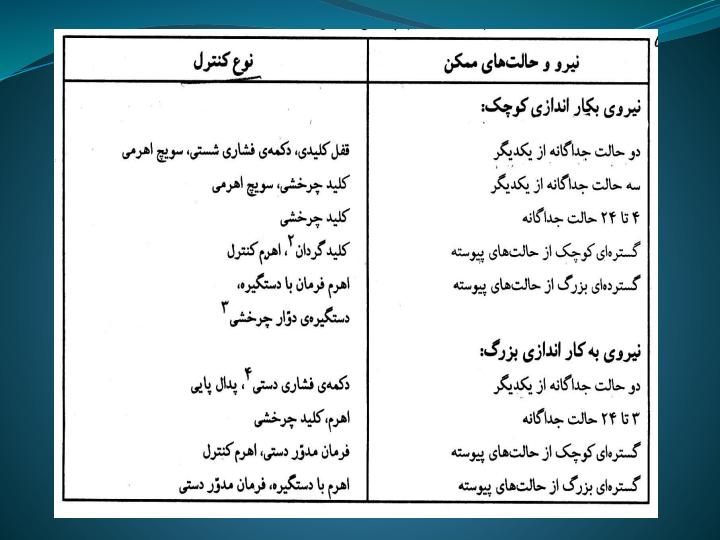 نیرو و حالت‌های ممکن	نوع کنترل
نیروی بکار اندازی کوچک:
دو حالت جداگانه از یکدیگر	قفل کلیدی، دکمه‌ی فشاری شستی، سویچ اهرمی
سه حالت جداگانه از یکدیگر	کلید چرخشی، سویچ اهرمی
۴ تا ۲۴ حالت جداگانه	کلید چرخشی
گستره‌ای کوچک از حالت‌های پیوسته	کلید گردان۲، اهرم کنترل
گسترده‌ای بزرگ از حالت‌های پیوسته	اهرم فرمان با دستگیره،
دستگیره‌ی دوّار چرخشی۳
نیروی به کار اندازی بزرگ:
دو حالت جداگانه از یکدیگر	دکمه‌ی فشاری دستی۴، پدال پایی
۳ تا ۲۴ حالت جداگانه	اهرم، کلید چرخشی
گستره‌ای کوچک از حالت‌های پیوسته	فرمان مدوّر دستی، اهرم کنترل
گستره‌ای بزرگ از حالت‌های پیوسته	اهرم با دستگیره، فرمان مدوّر دستی